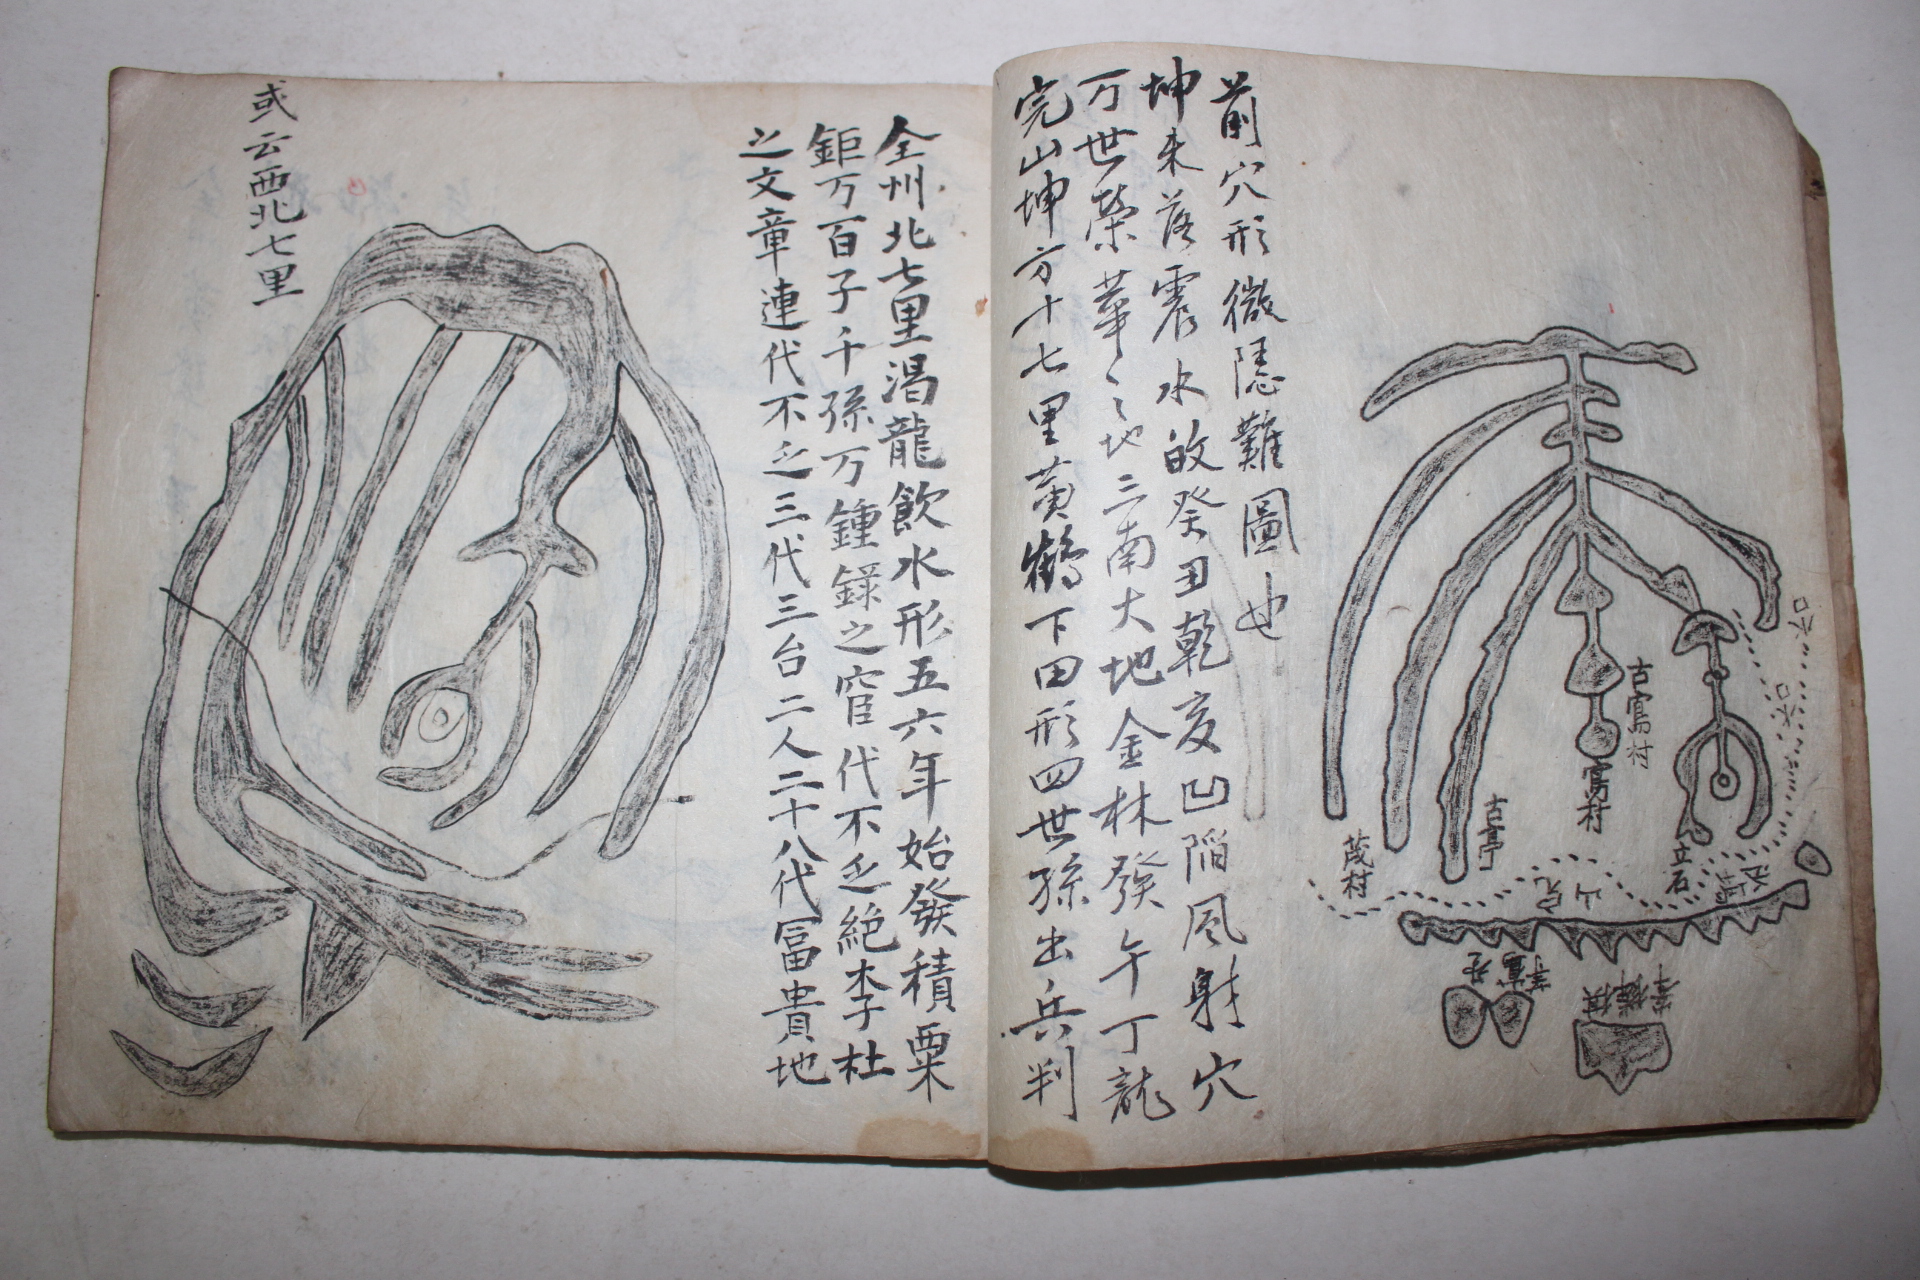 前穴形微隱難圖也
坤來落震水的癸丑乾亥凹陷風射穴
万世榮華之地三南大地金林發午丁龍
完山坤方十七里黃鶴下田形四世孫出兵判
古寫村
寫村
古亭
茂村
立石
全州北七里渴龍飮水形五六年始發積粟
鉅万百子千孫万鍾錄之官代不乏絶李杜
之文章連代不乏三代三台二人二十八代冨貴地
或云西北七里